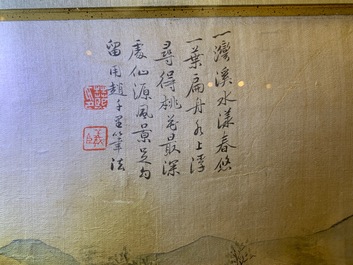 一灣溪水漾春悠
一葉扁舟水上浮
尋得桃花最深
處仙源風景足勾
留用趙千里筆法